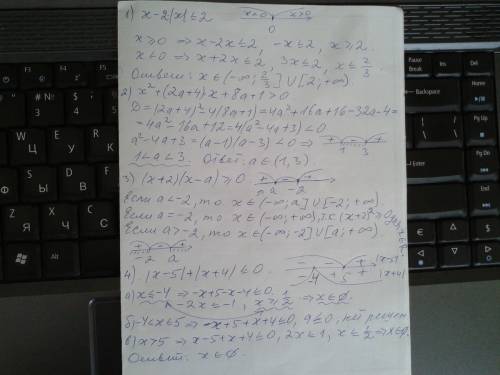 1) x-2|x| ≤ 2
x<0 x>0
0
x≥0 ⇒ x-2x≤2, -x≤2, x≥2.
x<0 ⇒ x+2x≤2, 3x≤2, x≤2/3.
Ответ: x∈(-∞; 2/3]∪[2; +∞)
2) x²+(2a+4)x+8a+1>0
D=(2a+4)²-4(8a+1)=4a²+16a+16-32a-4=
=4a²-16a+12=4(a²-4a+3)<0
a²-4a+3=(a-1)(a-3)<0 ⇒
+ - +
1 3
1<a<3. Ответ: a∈(1,3)
3) (x+2)(x-a)≥0
+ - +
a -2
Если a<-2, то x∈(-∞;a]∪[-2;+∞).
Если a=-2, то x∈(-∞;+∞), т.к. (x+2)²≥0
Если a>-2, то x∈(-∞;-2]∪[a;+∞).
+ - +
-2 a
4) |x-5|+|x+4|≤0.
- - + |x-5|
-4 5
- + + |x+4|
а) x≤-4 ⇒ -x+5-x-4≤0,
-2x≤-1, x≥1/2 ⇒ x∈∅.
б) -4<x≤5 ⇒ -x+5+x+4≤0, 9≤0, нет решен
в) x>5 ⇒ x-5+x+4≤0, 2x≤1, x≤1/2 ⇒ x∈∅.
Ответ: x∈∅.
Pause
Break
Ins
Del